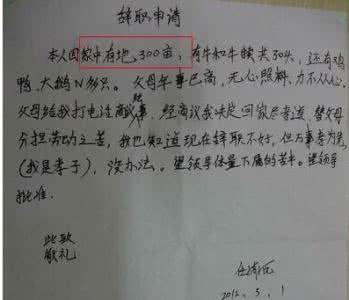 辞职申请
本人因家中有地300亩，有牛和牛犊共30头，还有鸡
鸭、大鹅N多只。父母年事已高，无心照料，力不从心。
父母给我打电话商议事，经商议我决定回家尽孝道，替父母
分担劳动之苦，我也知道现在辞职不好，但百事孝为先
(我是孝子)，没办法。望领导体量下属的苦衷。望领导
批准.
此致
敬礼
2012. 5. 1